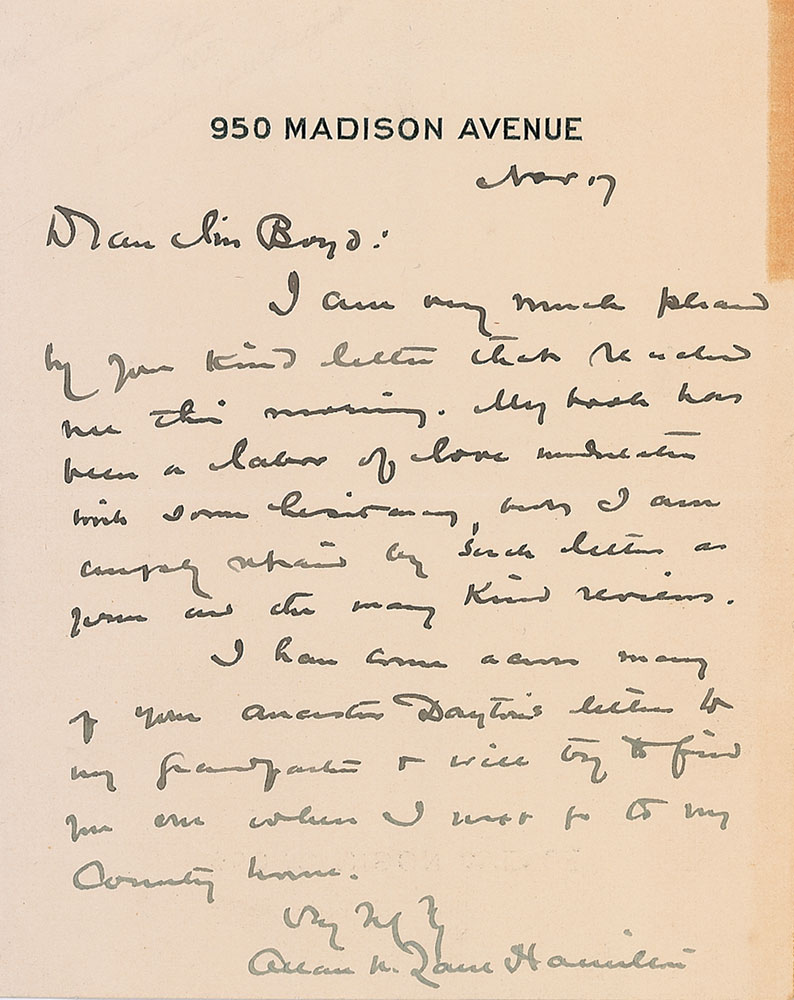 950 MADISON AVENUE
Nov 17
Dear Miss Boyd:
I am very much pleased
by your kind letter that reached
me this morning. My book has
been a labor of love undertaken
with some hesitancy, but I am
amply repaid by such letters as
yours and the many kind reviews.
I have come across many
of your ancestor Dayton's letters to
my grandfather & will try to find
you one when I next go to my
Country home.
Very
Allan McLane Hamilton